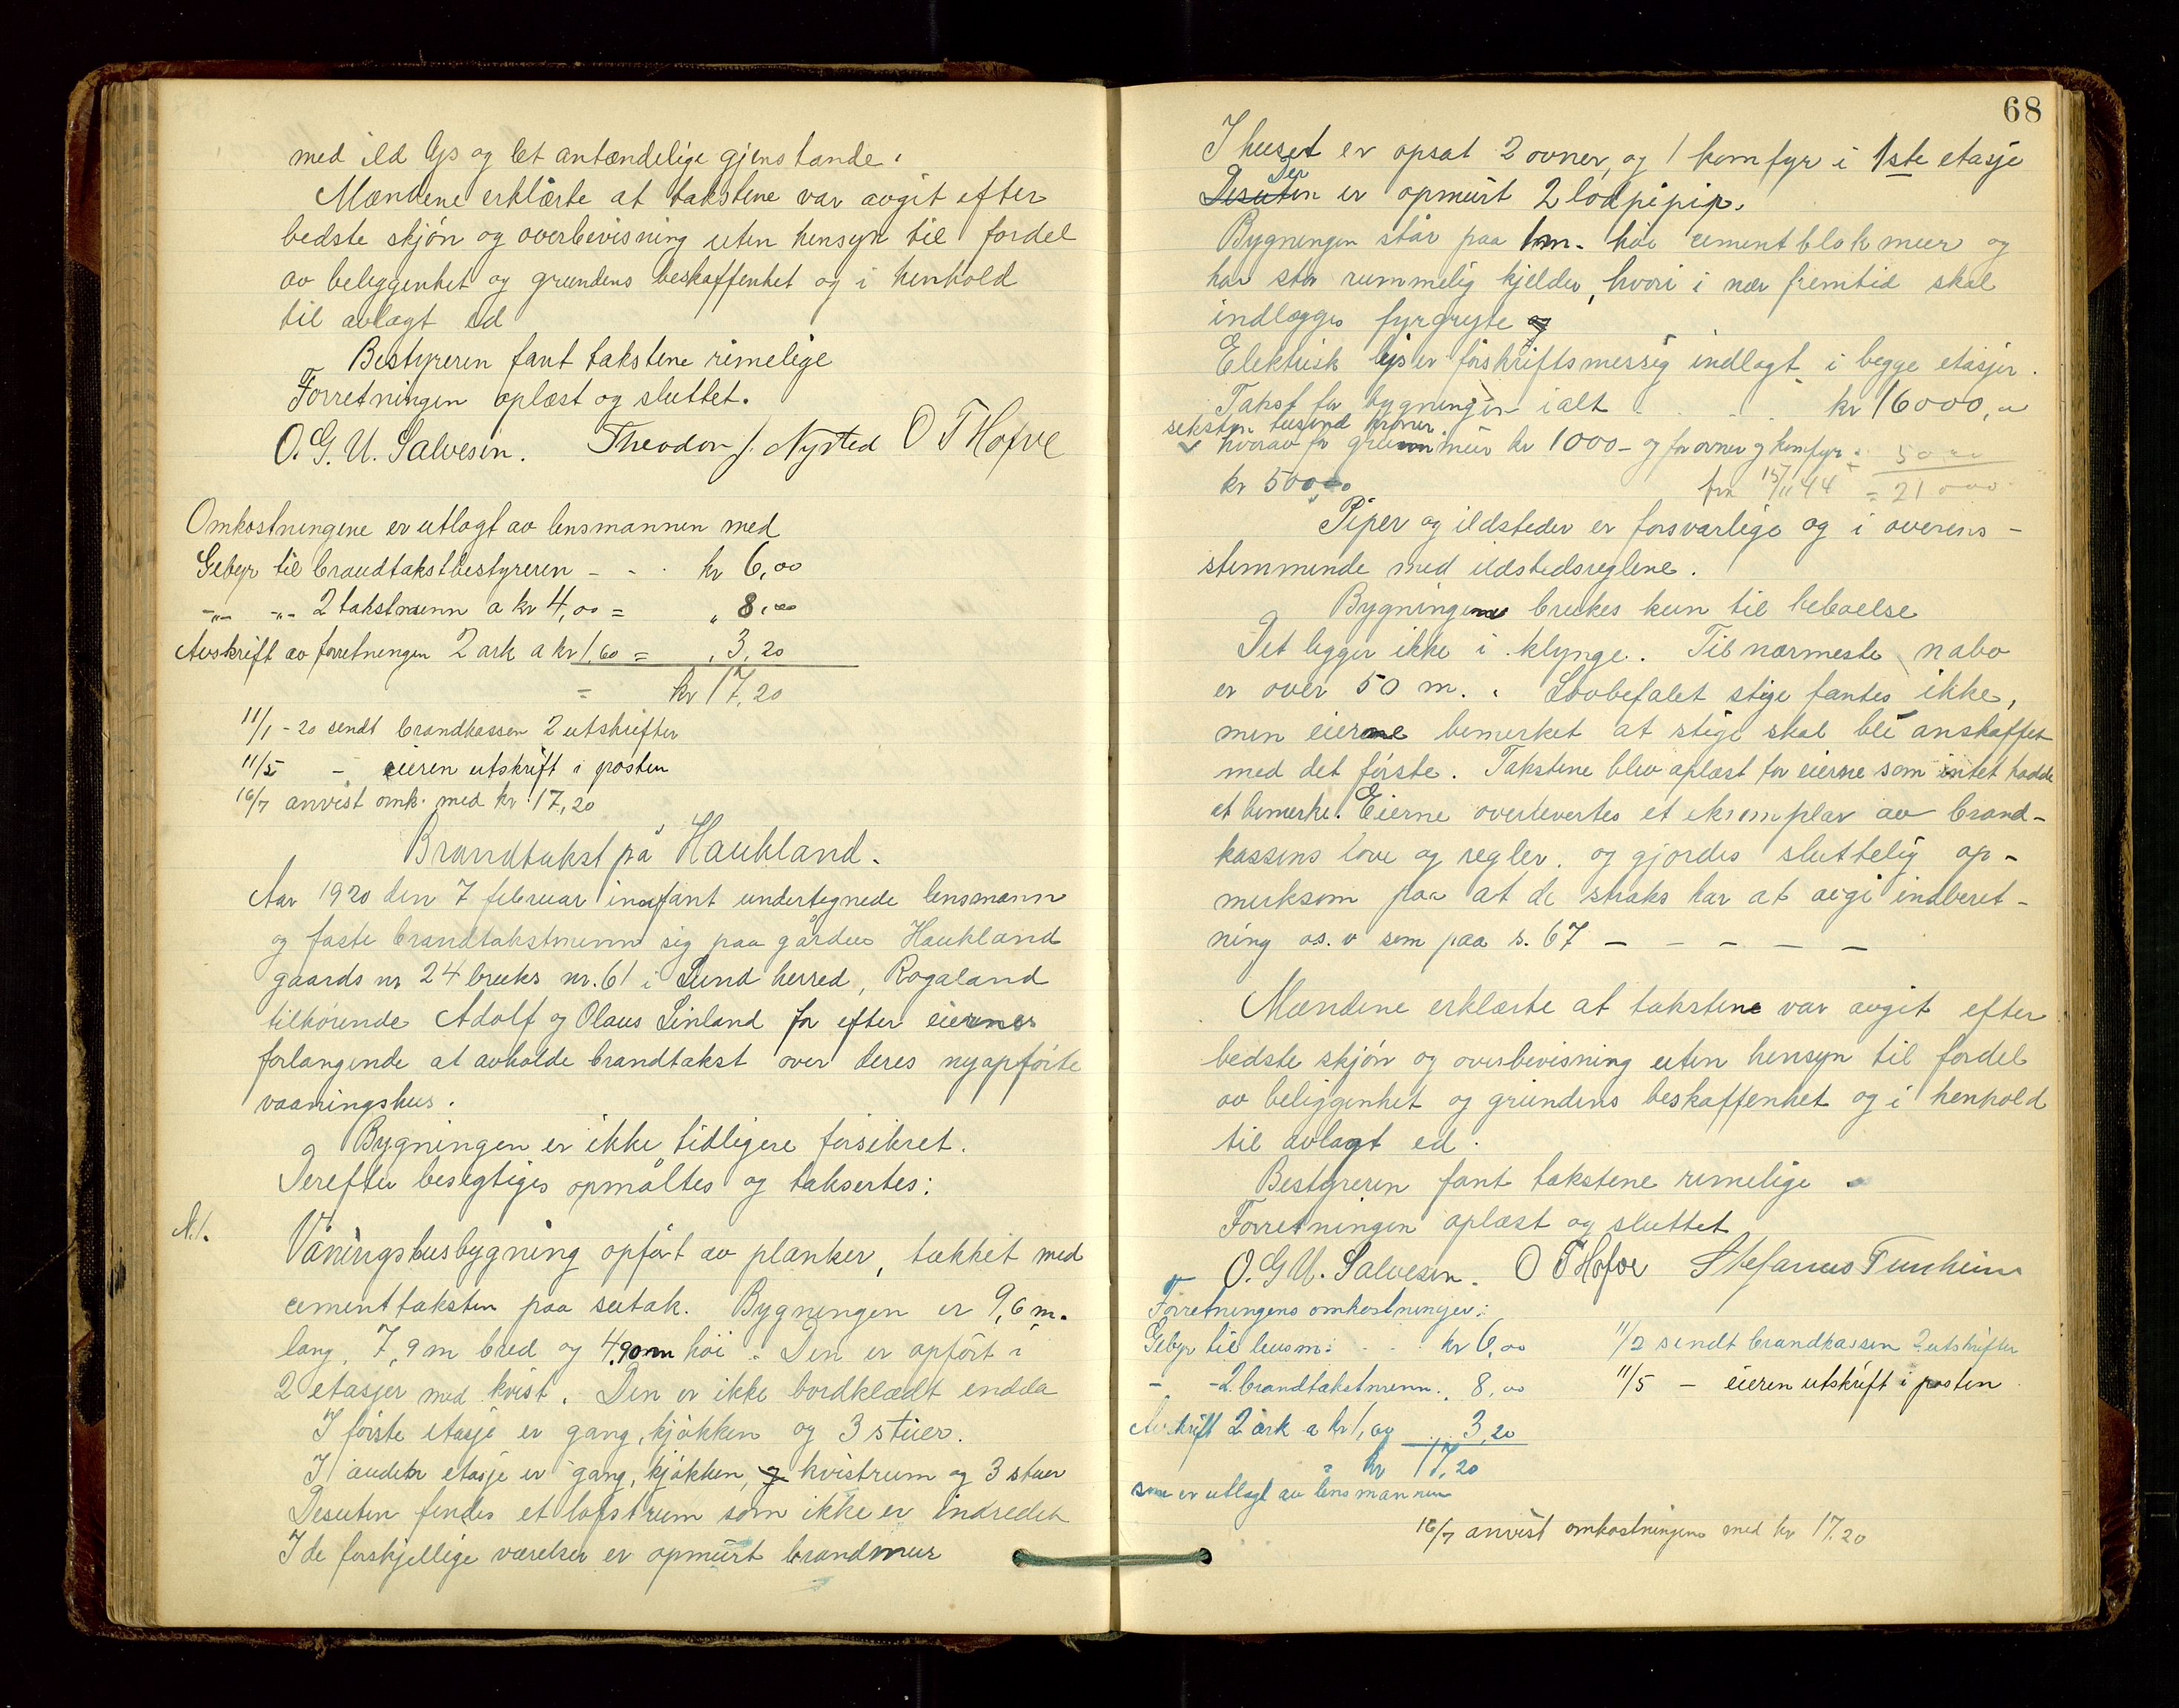 med ild lys og let antændelige gjenstande.
Mændene erklærte at takstene var avgit efter
bedste skjøn og overbevisning uten hensyn til fordel
av beliggenhet og grundens beskaffenhet og i henhold
til avlagt ed
Bestyreren fant takstene rimelige
Forretningen oplæst og sluttet.
O. G. U. Salvesen. Theodor J. Nysted O T Hofve
Omkostningene er utlagt av lensmannen med
Gebyr til brandtakstbestyreren - - . kr 6,00
-"- -"- 2 takstmenn a kr 4,00 = " 8,00
Avskrift av forretningen 2 ark a kr 1,60 = " 3,20
= kr 17,20
11/1 - 20 sendt brandkassen 2 utskrifter
11/5 - eieren utskrift i posten
16/7 anvist omk. med kr 17,20
Brandtakst på Haukland.
Aar 1920 den 7 februar innfant undertegnede lensmann
og faste brandtakstmenn sig paa gården Haukland
gaards nr 24 bruks nr. 61 i Lund herred, Rogaland
tilhørende Adolf og Olaus Linland for efter eiernes
forlangende at avholde brandtakst over deres nyopførte
vaaningshus.
Bygningen er ikke tidligere forsikret.
Derefter besigtiges opmåltes og taksertes:
N. 1.
Våningshusbygning opført av planker, tækket med
cementtaksten paa sutak. Bygningen er 9,6 m.
lang, 7,9 m bred og 4,90 m høi. Den er opført i
2 etasjer med kvist. Den er ikke bordklædt endda
I første etasje er gang, kjøkken og 3 stuer.
I anden etasje er gang, kjøkken, og kvistrum og 3 stuer
Desuten findes et loftsrum som ikke er indredet
I de forskjellige værelser er opmurt brandmur
68
I huset er opsat 2 ovner, og 1 komfyr i 1ste etasje
Der
Desuten er opmurt 2 lødpipip.
Bygningen står paa 1 m. høi cementblokmur og
har stor rummelig kjelder, hvori i nær fremtid skal
indlægges fyrgryte og
Elektrisk lys er forskriftsmessig indlagt i begge etasjer.
Takst for bygningen ialt - . . . kr 16000,00
seksten tusind kroner.
hvorav for grunnmur kr 1000 - og for ovner og komfyr + 5000
kr 500,00 fra 15/11 44 = 21000
Piper og ildsteder er forsvarlige og i overens-
stemmende med ildstedsreglene.
Bygningen brukes kun til beboelse
Det ligger ikke i klynge. Til nærmeste nabo
er over 50 m. Lovbefalet stige fantes ikke,
men eierne bemerket at stige skal bli anskaffet
med det første. Takstene blev oplæst for eierne som intet hadde
at bemerke. Eierne overlevertes et eksemplar av brand-
kassens love og regler. og gjordes sluttelig op-
merksom paa at de straks har at avgi indberet-
ning os. v som paa s. 67 - - - - -
Mændene erklærte at takstene var avgit efter
bedste skjøn og overbevisning uten hensyn til fordel
av beliggenhet og grundens beskaffenhet og i henhold
til avlagt ed.
Bestyreren fant takstene rimelige
Forretningen oplæst og sluttet
O. G U. Salvesen. O T Hofve Stefanus Tunheim
Forretningens omkostninger:
Gebyr til lensm: - . . kr 6,00 11/2 sendt brandkassen 2 utskrifter
- - 2 brandtakstmenn. 8,00 11/5 - eieren utskrift i posten
Avskrift 2 ark a kr 1,60 . . . 3,20
= kr 17,20
som er utlagt av lensmannen
16/7 anvist omkostningene med kr 17.20